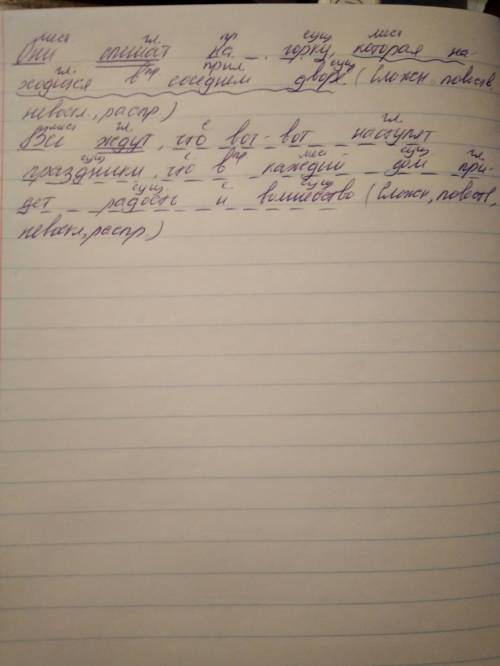 мест гл. пр сущ мест
Они спешат на горку, которая на-
гл. пр прил. сущ
ходится в соседнем дворе. (Сложн, повеств,
невоскл., распр)
мест гл. с гл.
Все ждут, что вот-вот наступят
сущ с пр мес сущ гл.
праздники, что в каждый дом при-
сущ. с. сущ.
дет радость и волшебство (Сложн, повеств,
невоскл, распр)